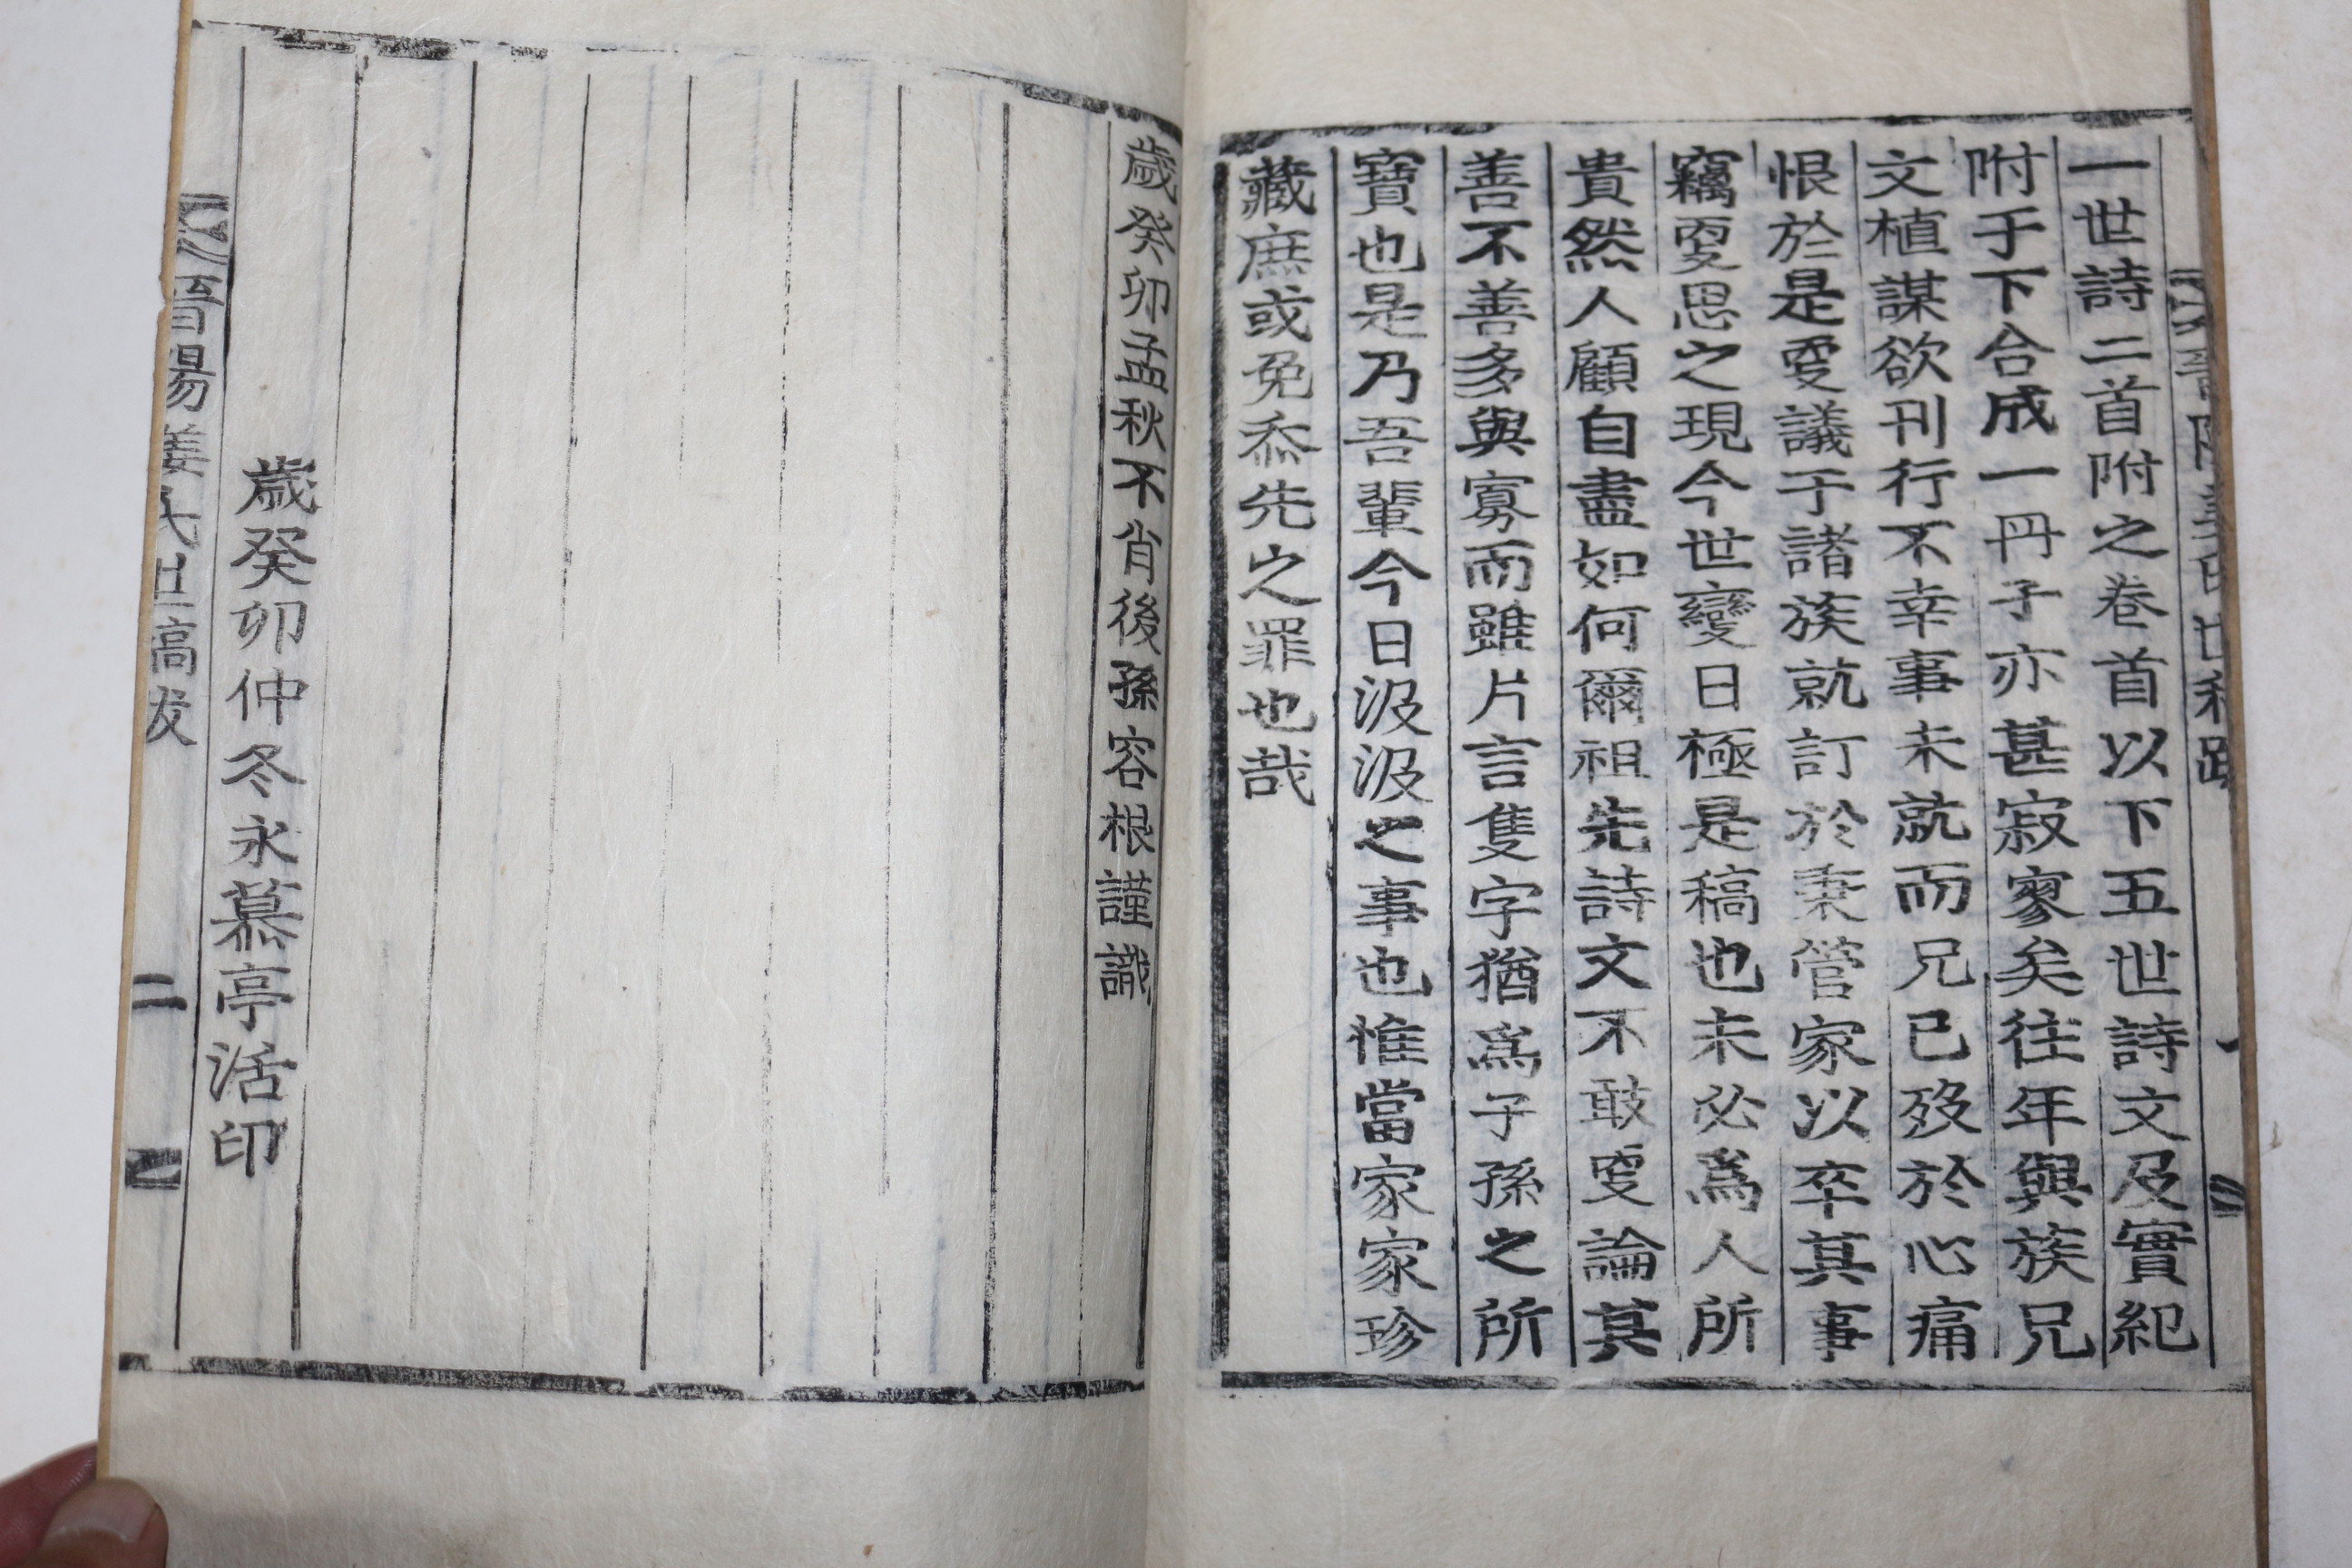 一世詩二首附之卷首以下五世詩文及實紀
附于下合成一冊子亦甚寂寥矣往年與族兄
文植謀欲刊行不幸事未就而兄已歿於心痛
恨於是更議于諸族就訂於秉管家以卒其事
竊更思之現今世變日極是稿也未必爲人所
貴然人顧自盡如何爾祖先詩文不敢更論其
善不善多與寡而雖片言隻字猶爲子孫之所
寶也是乃吾輩今日汲汲之事也惟當家家珍
藏庶或免忝先之罪也哉
歲癸卯孟秋不肖後孫容根謹識
歲癸卯仲冬永慕亭活印
晋陽姜氏世稿跋
二